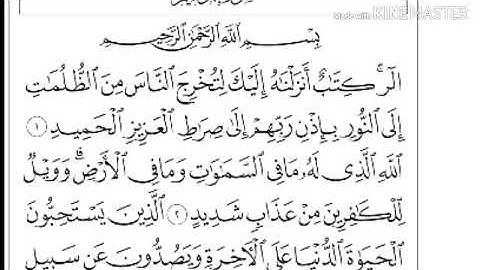 Made with KINEMASTER
بِسْمِ اللَّهِ الرَّحْمَٰنِ الرَّحِيمِ
الٓر ۚ كِتَٰبٌ أَنزَلْنَٰهُ إِلَيْكَ لِتُخْرِجَ النَّاسَ مِنَ الظُّلُمَٰتِ
إِلَى النُّورِ بِإِذْنِ رَبِّهِمْ إِلَىٰ صِرَٰطِ الْعَزِيزِ الْحَمِيدِ ١
اللَّهِ الَّذِى لَهُۥ مَا فِى السَّمَٰوَٰتِ وَمَا فِى الْأَرْضِ ۗ وَوَيْلٌ
لِّلْكَٰفِرِينَ مِنْ عَذَابٍ شَدِيدٍ ٢ الَّذِينَ يَسْتَحِبُّونَ
الْحَيَوٰةَ الدُّنْيَا عَلَى الْأَخِرَةِ وَيَصُدُّونَ عَن سَبِيلِ